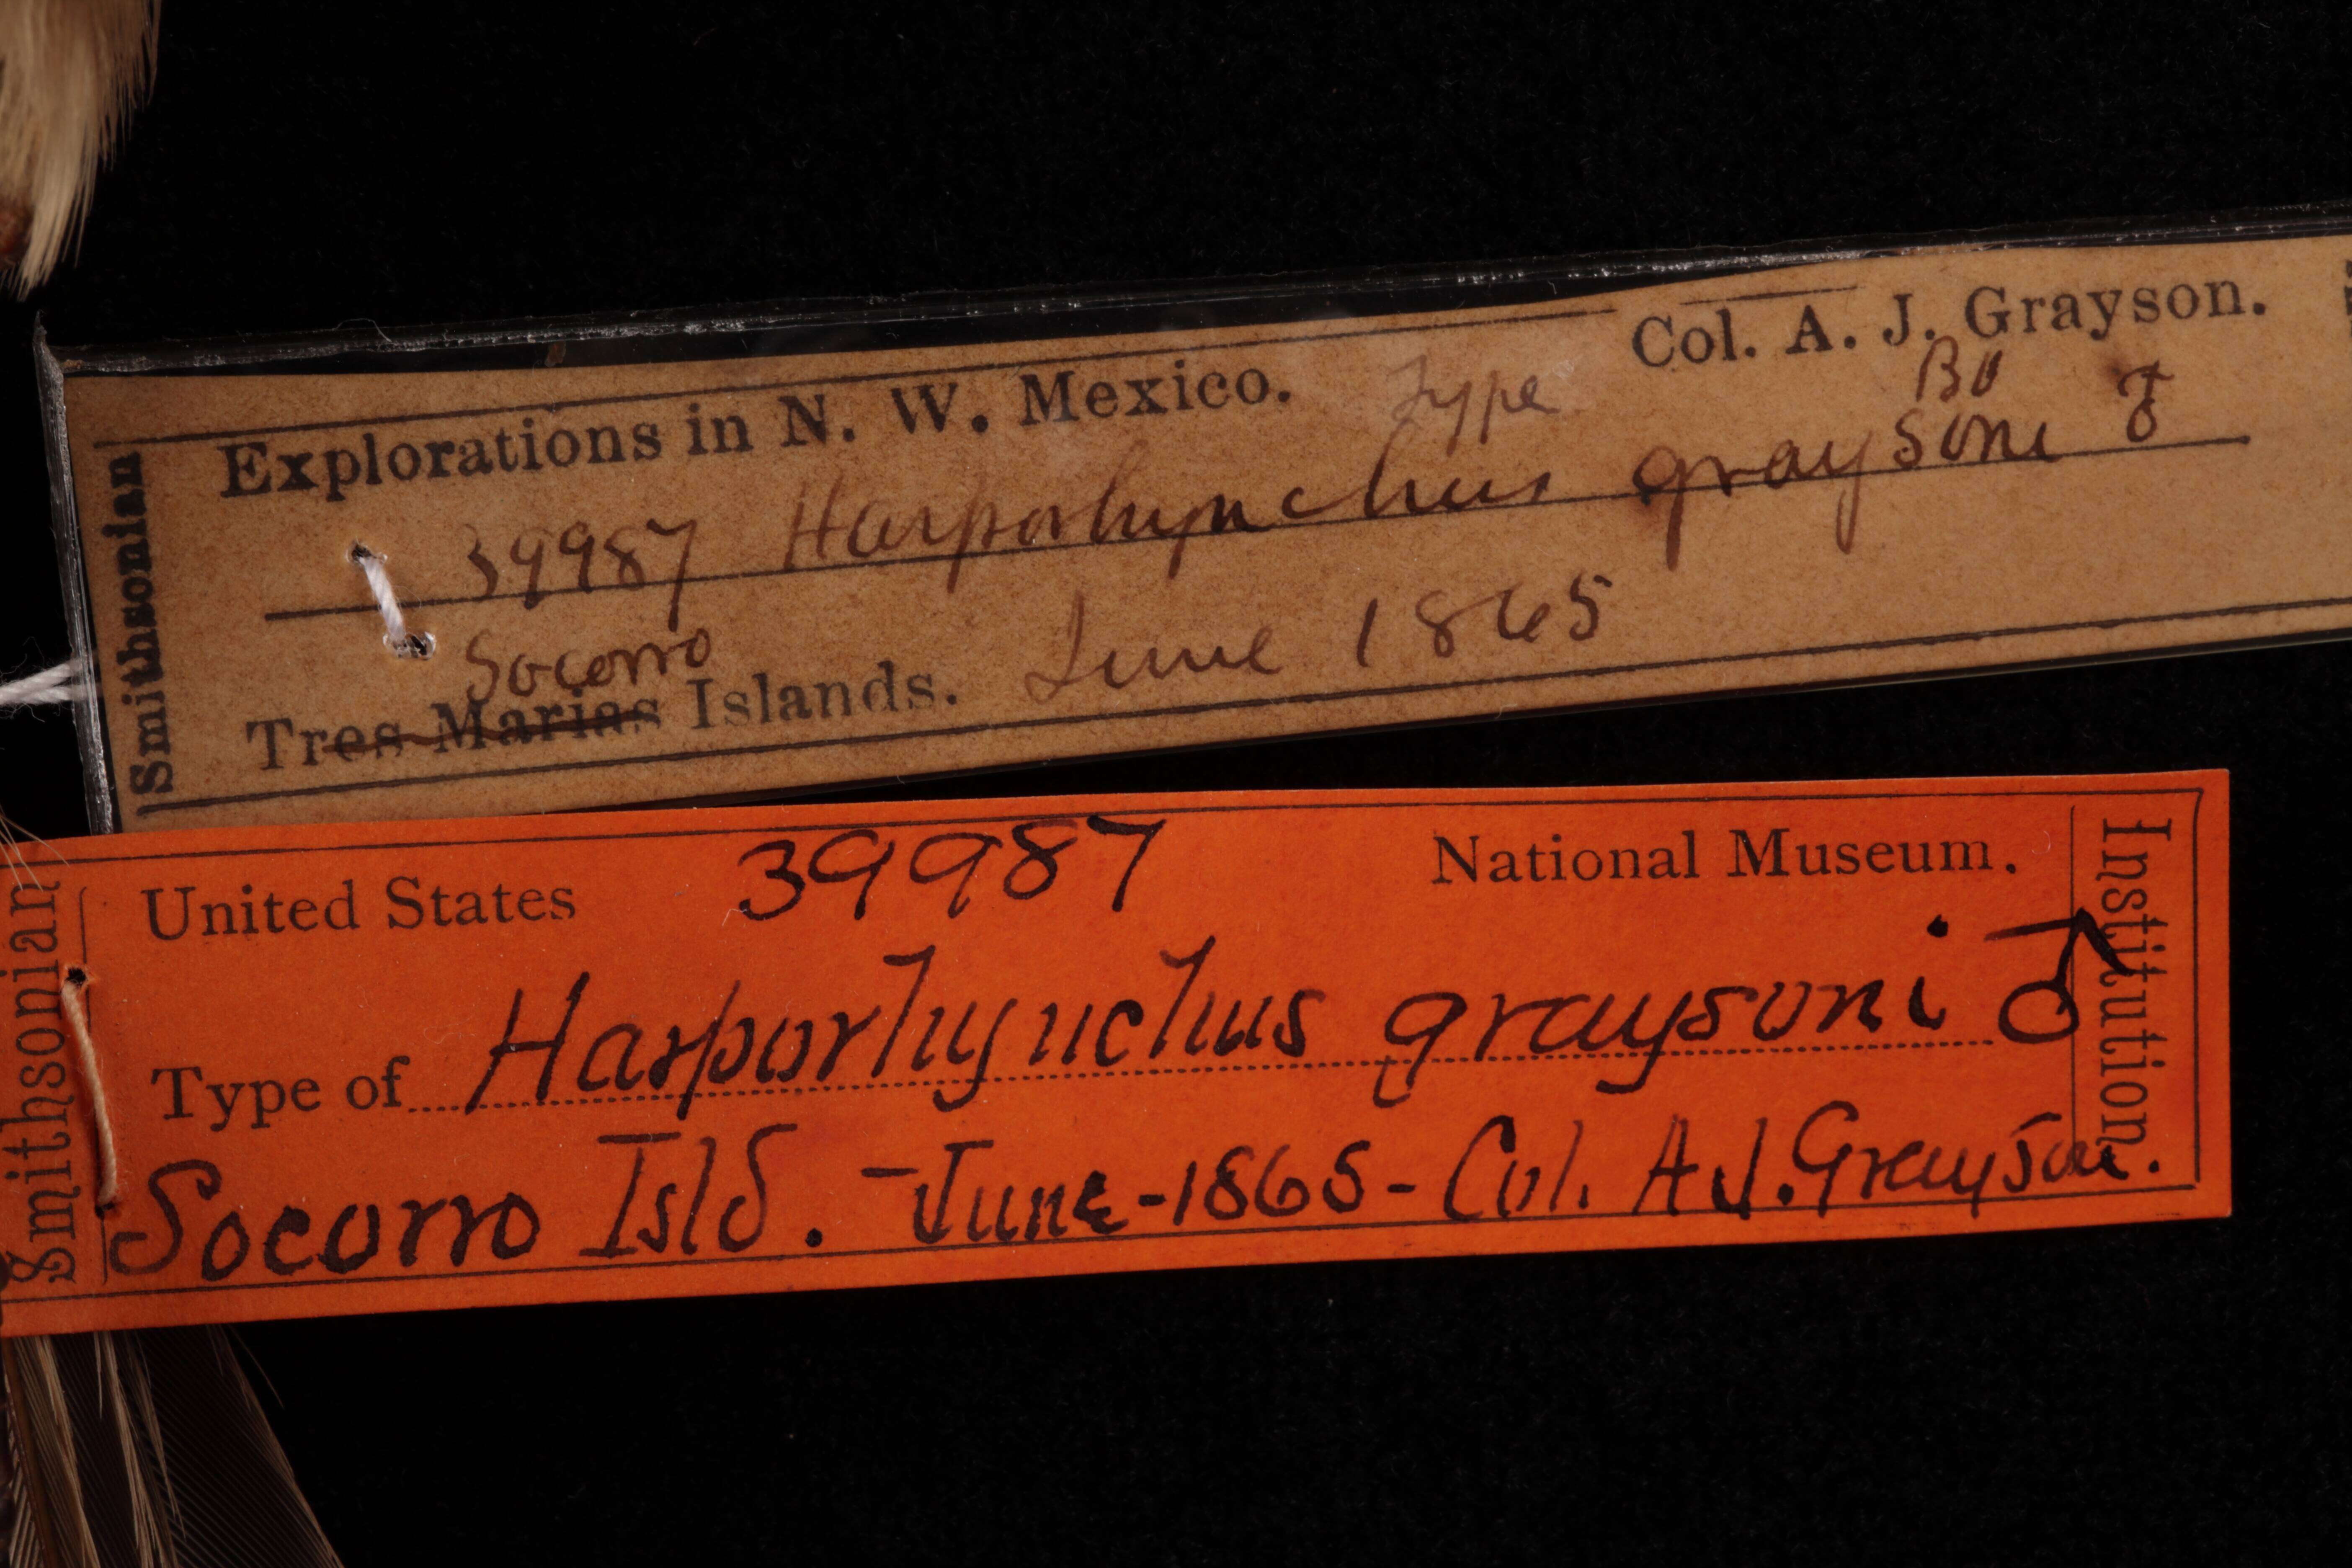 Smithsonian
Explorations in N. W. Mexico. Type Col. A. J. Grayson.
39987 Harporhynchus graysoni ♂
Socorro
Tres Marias Islands. June 1865
Smithsonian
United States 39987 National Museum.
Type of Harporhynchus graysoni ♂
Socorro Isld. - June - 1865 - Col. A.J. Grayson.
Institution.